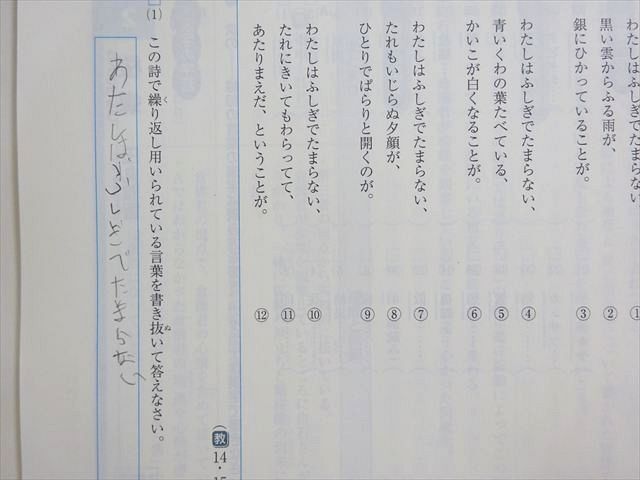 わたしはふしぎでたまらない ①
黒い雲からふる雨が、 ②
銀にひかっていることが。 ③
わたしはふしぎでたまらない、 ④
青いくわの葉たべている、 ⑤
かいこが白くなることが。 ⑥
わたしはふしぎでたまらない、 ⑦
たれもいじらぬ夕顔が、 ⑧
ひとりでぱらりと開くのが。 ⑨
わたしはふしぎでたまらない、 ⑩
たれにきいてもわらってて、 ⑪
あたりまえだ、ということが。 ⑫
教 14・15
(1) この詩で繰り返し用いられている言葉を書き抜いて答えなさい。
く
ぬ
わたしはふしぎでたまらない